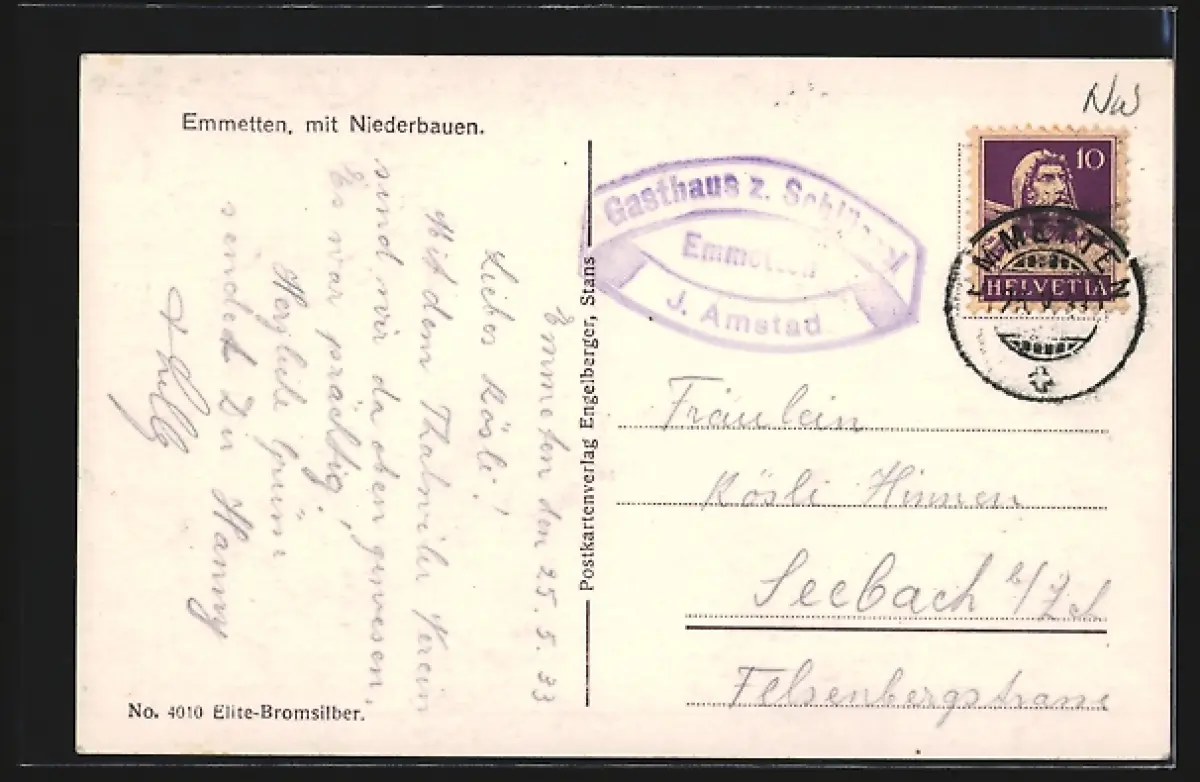 Emmetten, mit Niederbauen.
Emmeten den 25. 5. 33
Liebes Rösli!
Mit dem Thalwiler Verein
sind wir da oben gewesen,
Es war prächtig!
Herzliche Grüsse
sendet Dir Hanny
Postkartenverlag Engelberger, Stans
No. 4010 Elite-Bromsilber.
NW
10
HELVETIA
EMMETTEN
Gasthaus z. Schlüssel
Emmetten
J. Amstad
Fräulein
Rösli Hinnen
Seebach b/Zch
Felsenbergstrasse